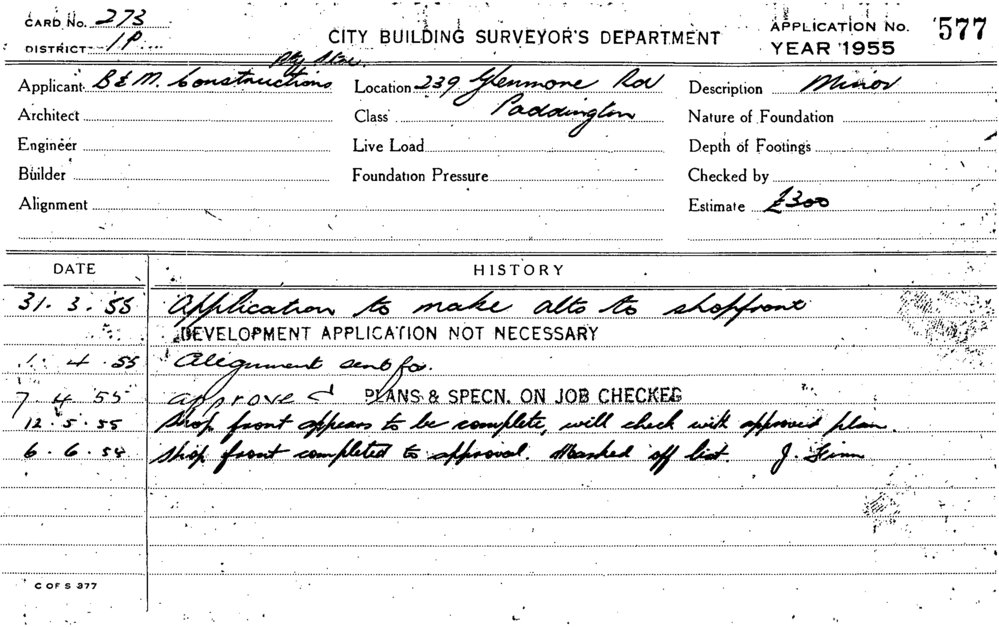 CARD No. 273
DISTRICT 1P
CITY BUILDING SURVEYOR'S DEPARTMENT
APPLICATION No. 577
YEAR 1955
Applicant B & M. Constructions Pty
Location 239 Glenmore Rd
Description Minor
Architect
Class Paddington
Nature of Foundation
Engineer
Live Load
Depth of Footings
Builder
Foundation Pressure
Checked by
Alignment
Estimate £300
DATE HISTORY
31. 3. 55 Application to make alts to shopfront
DEVELOPMENT APPLICATION NOT NECESSARY
1. 4. 55 Alignment sent for.
7 4 55 approved PLANS & SPECN. ON JOB CHECKED
12. 5. 55 Shop front appears to be complete, will check with approved plan.
6. 6. 55 Shop front completed to approval. Marked off list. J.
C OF S 377